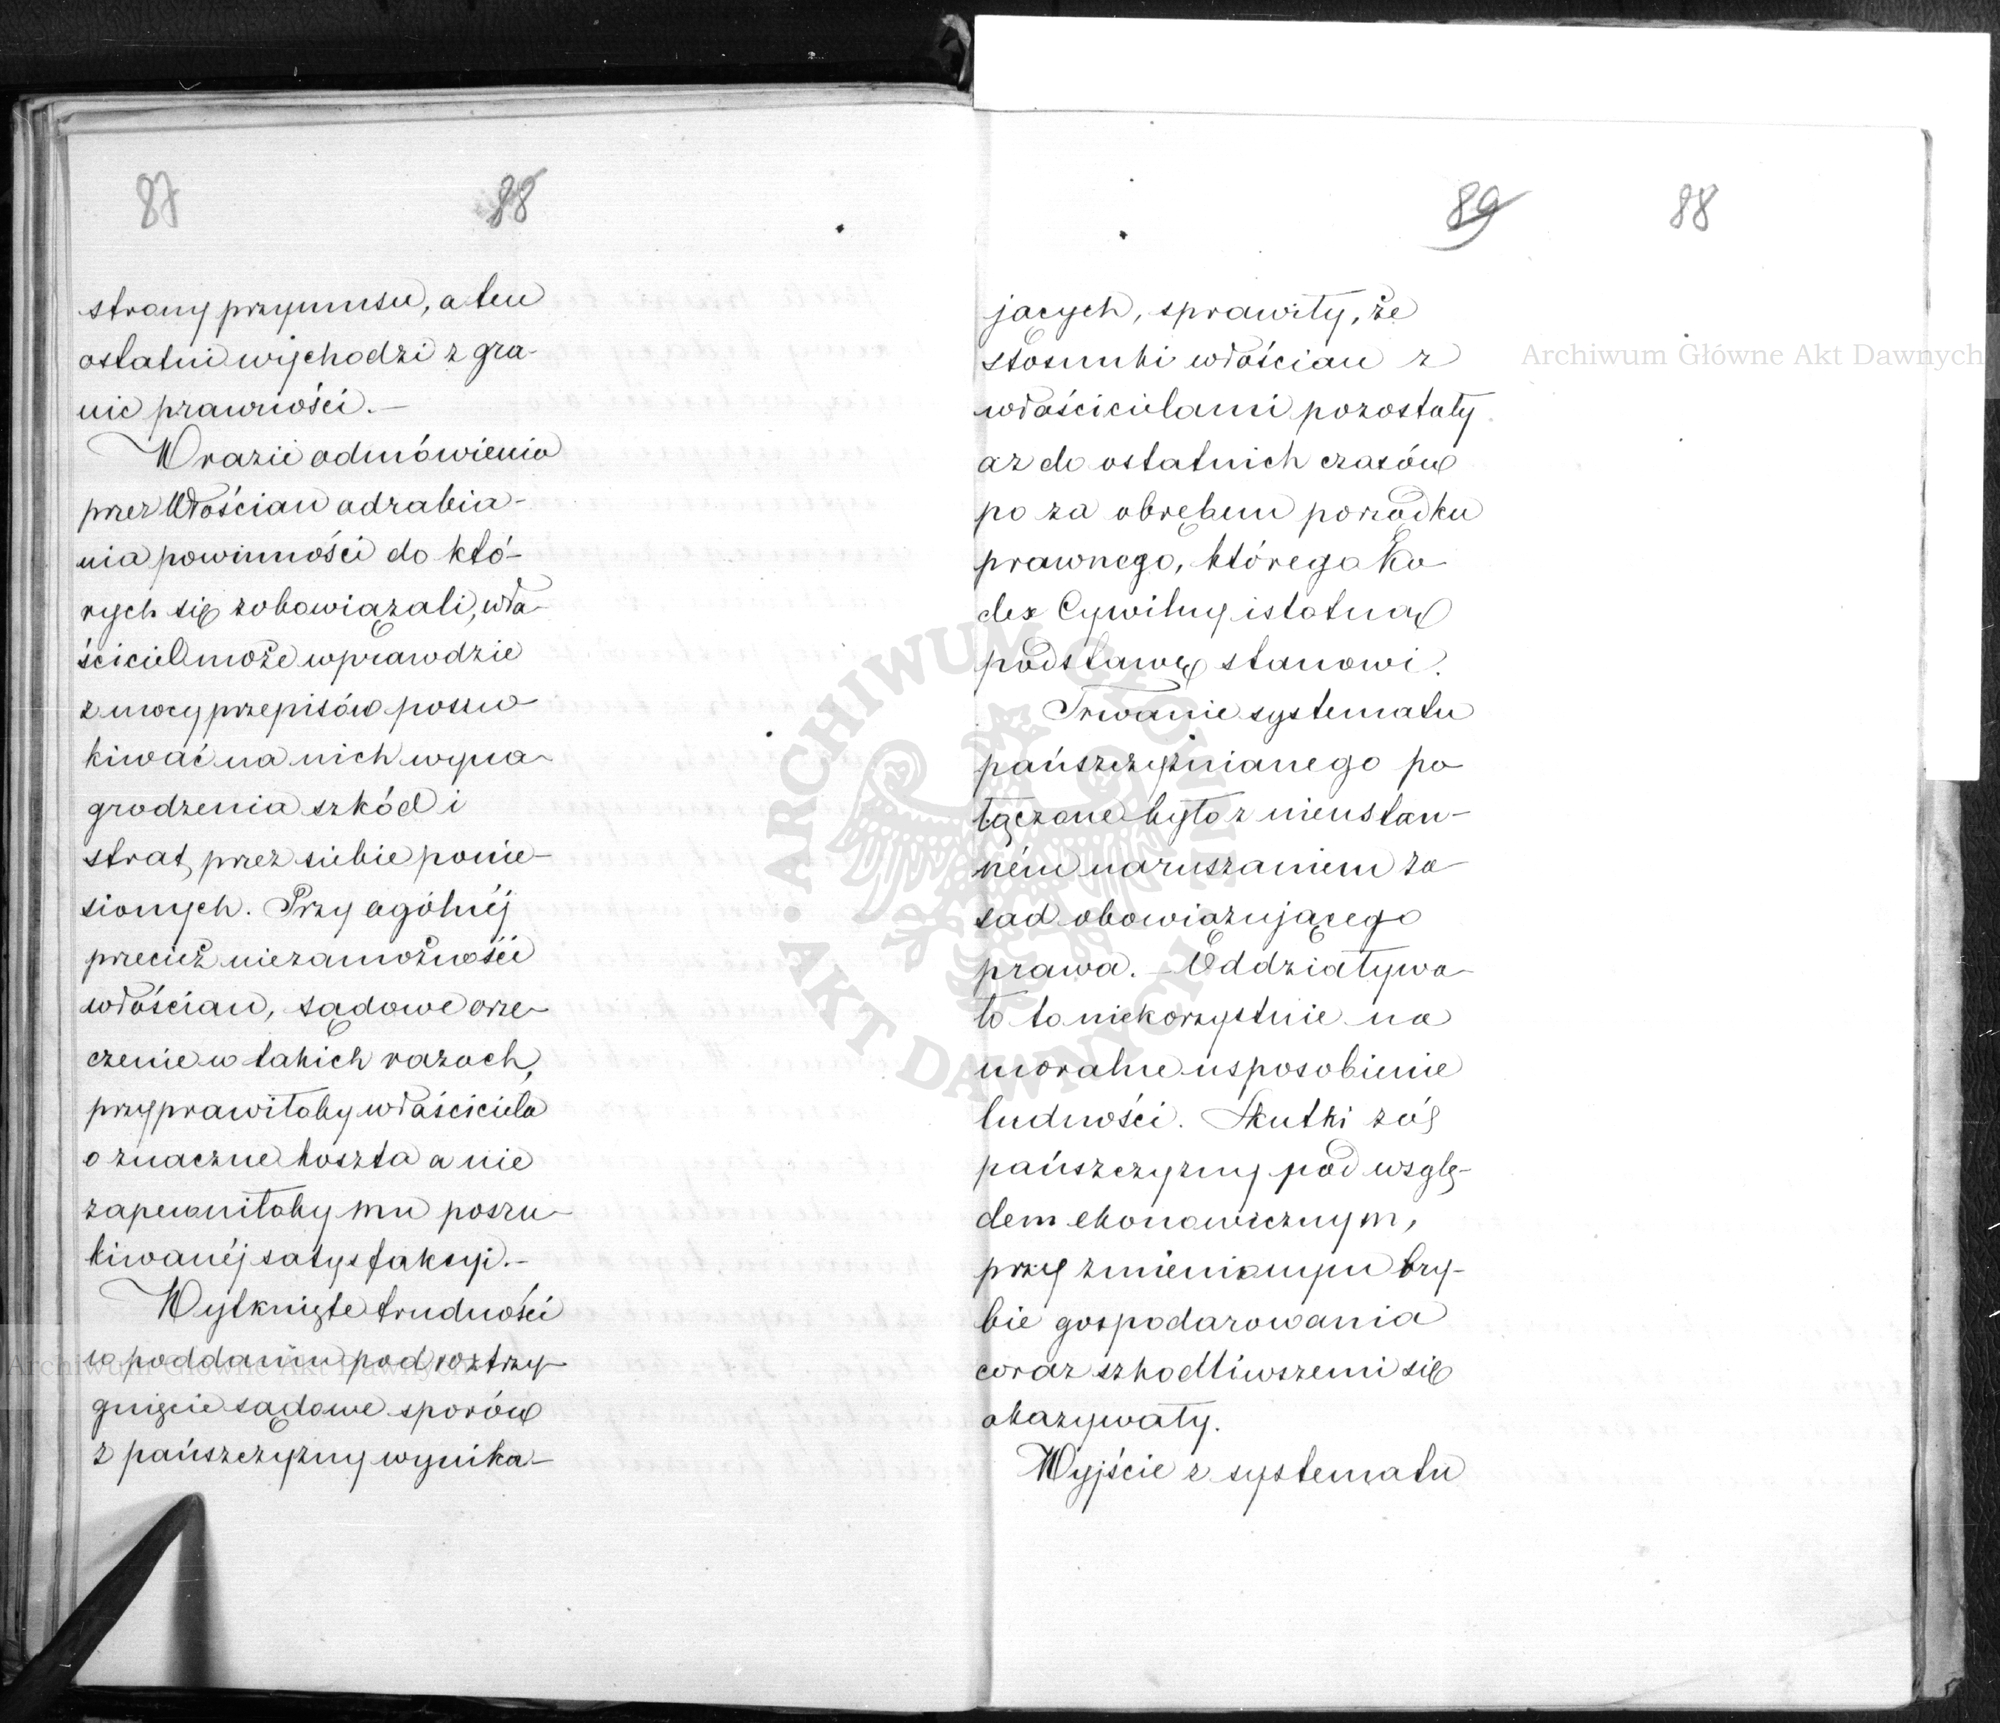 87 88
strony przymusu, a ten
ostatni wychodzi z gra-
nic prawności.—
W razie odmówienia
przez Włościan odrabia-
nia powinności do któ-
rych się zobowiązali, wła-
ściciel może wprawdzie
z mocy przepisów poszu-
kiwać na nich wyna-
grodzenia szkód i
strat, przez siebie ponie-
sionych. Przy ogólnéj
przecież niezamożności
włościan, sądowe orze-
czenie w takich razach,
przyprawiłoby właściciela
o znaczne koszta a nie
zapewniłoby mu poszu-
kiwanéj satysfakcyi.—
Wytknięte trudności
w poddaniu pod roztrzy-
gnięcie sądowe sporów
z pańszczyzny wynika-
89 88
jących, sprawiły, że
stosunki włościan z
właścicielami pozostały
aż do ostatnich czasów
po za obrębem porządku
prawnego, którego Ko-
dex Cywilny istotną
podstawę stanowi.
Trwanie systematu
pańszczyźnianego po-
łączone było z nieustan-
ném naruszaniem za-
sad obowiązującego
prawa.— Oddziaływa-
ło to niekorzystnie na
moralne usposobienie
ludności. Skutki zaś
pańszczyzny pod wzglę-
dem ekonomicznym,
przy zmienionym try-
bie gospodarowania
coraz szkodliwszemi się
okazywały.
Wyjście z systematu
Archiwum Główne Akt Dawnych
Archiwum Główne Akt Dawnych
ARCHIWUM GŁÓWNE • AKT DAWNYCH •